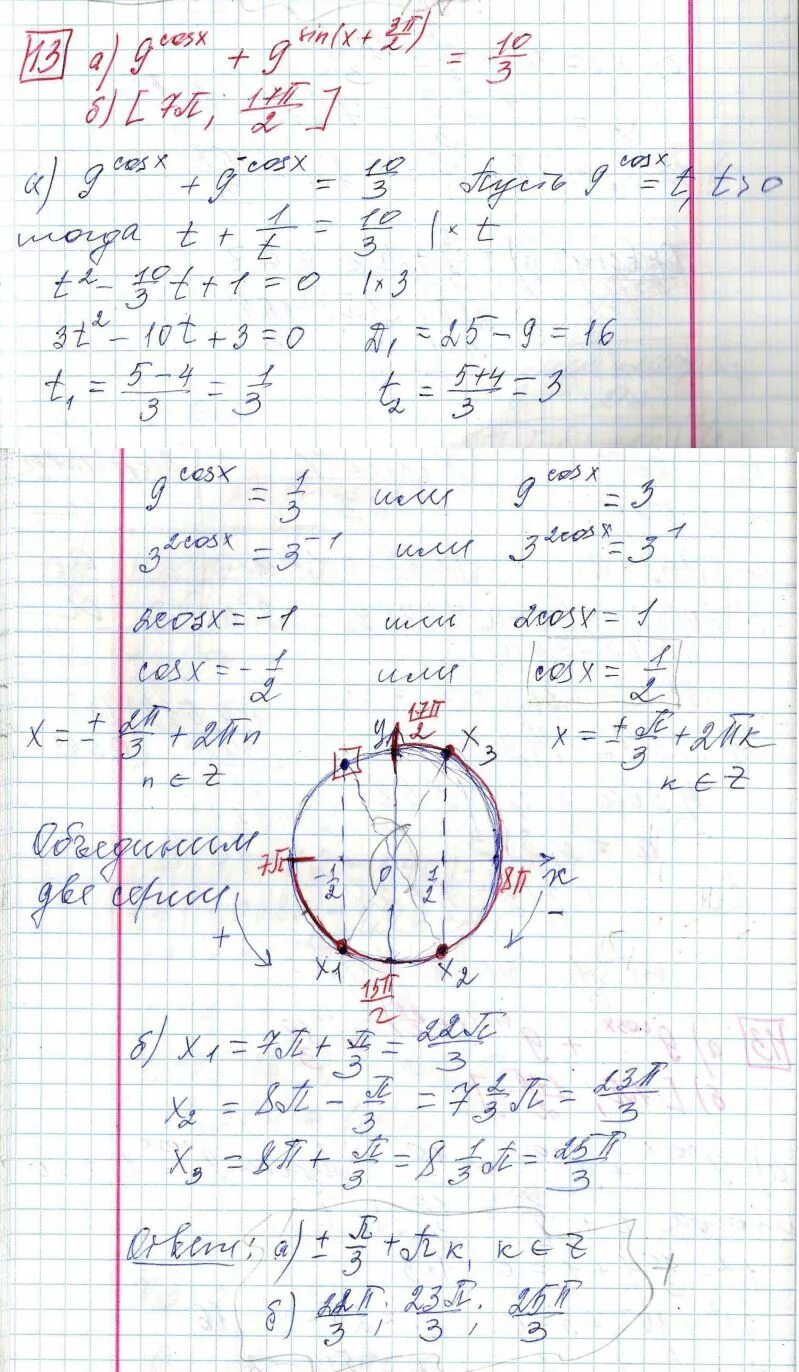 13 а) 9^cosx + 9^sin(x + 3π/2) = 10/3
б) [7π; 17π/2]
а) 9^cosx + 9^-cosx = 10/3 Пусть 9^cosx = t, t>0
тогда t + 1/t = 10/3 |× t
t² - 10/3 t + 1 = 0 |× 3
3t² - 10t + 3 = 0 D₁ = 25 - 9 = 16
t₁ = (5-4)/3 = 1/3 t₂ = (5+4)/3 = 3
9^cosx = 1/3 или 9^cosx = 3
3^2cosx = 3^-1 или 3^2cosx = 3^1
2cosx = -1 или 2cosx = 1
cosx = -1/2 или cosx = 1/2
x = ± 2π/3 + 2πn x = ± π/3 + 2πk
n ∈ Z k ∈ Z
y 17π/2 x₃
Объединим
две серии
7π -1/2 0 1/2 8π x
+ -
x₁ 15π/2 x₂
б) x₁ = 7π + π/3 = 22π/3
x₂ = 8π - π/3 = 7 2/3 π = 23π/3
x₃ = 8π + π/3 = 8 1/3 π = 25π/3
Ответ: а) ± π/3 + πk, k ∈ Z
б) 22π/3; 23π/3; 25π/3